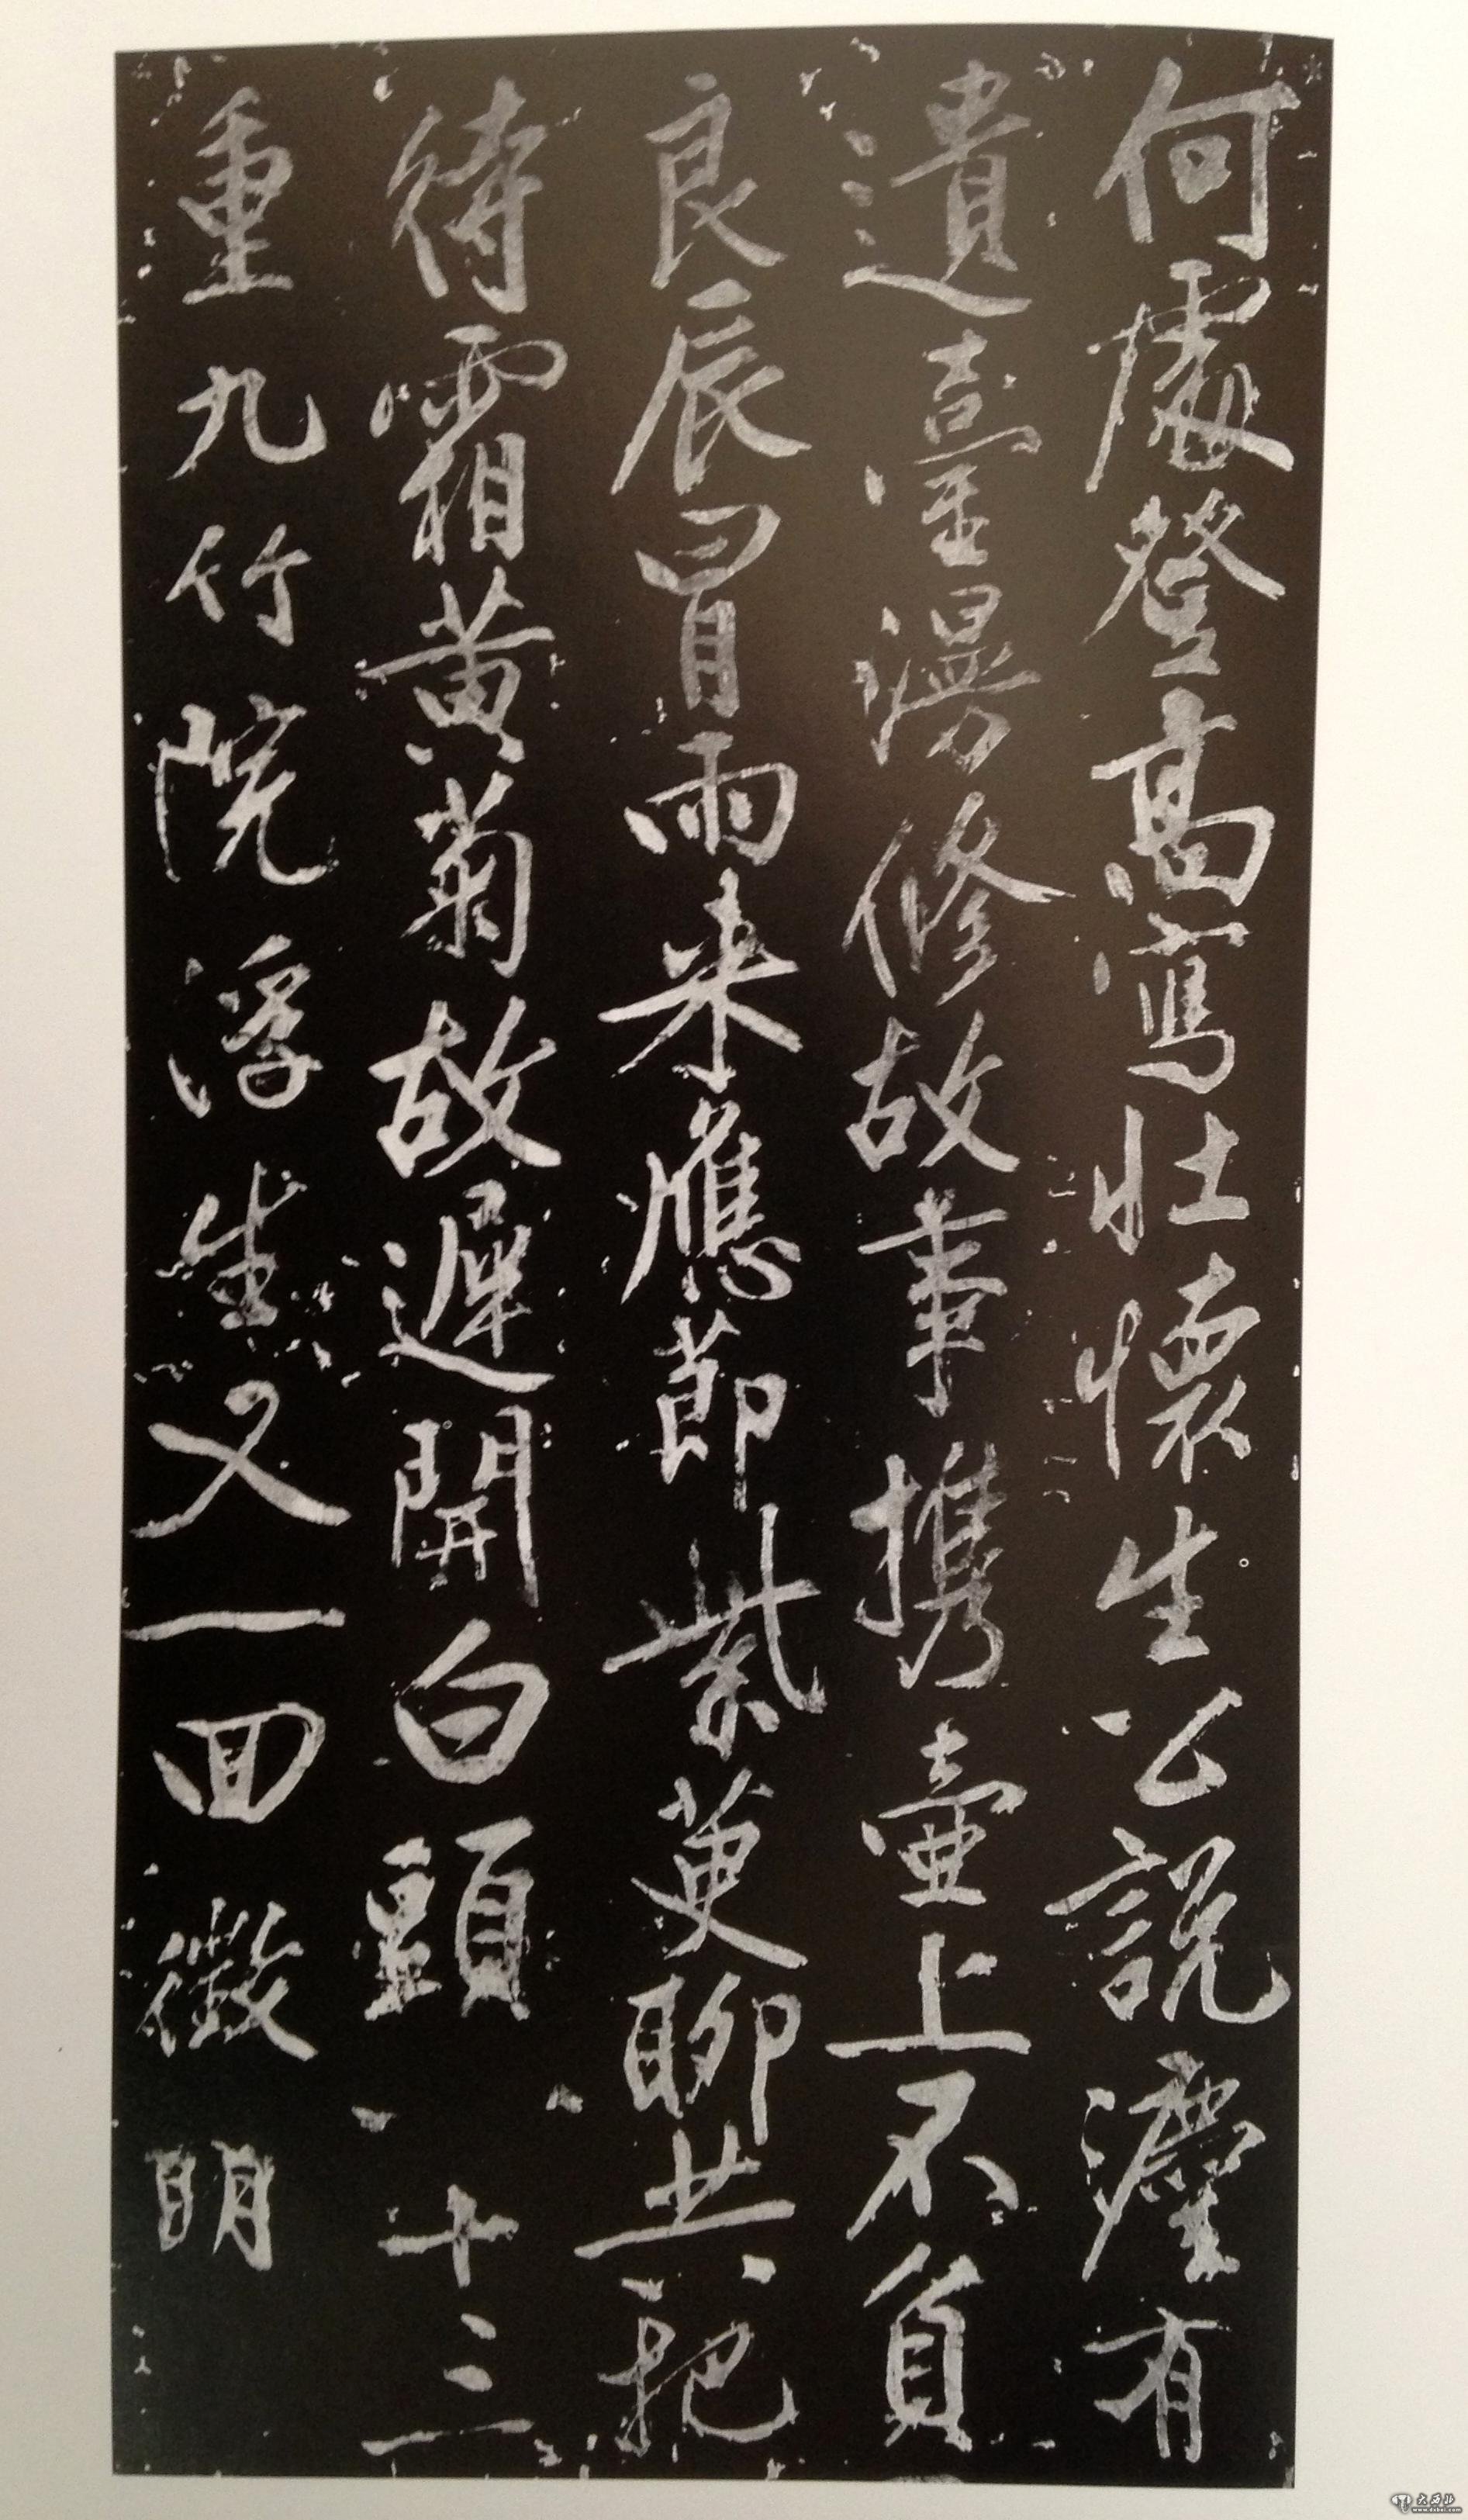 何處登高寫壯懷生公說瀍有
遺臺漫修故事攜壺上不負
良辰冒雨来應節紫萸聊共把
待霜黄菊故遲開白頭十三
重九竹院浮生又一回徵明
www.dxbei.com